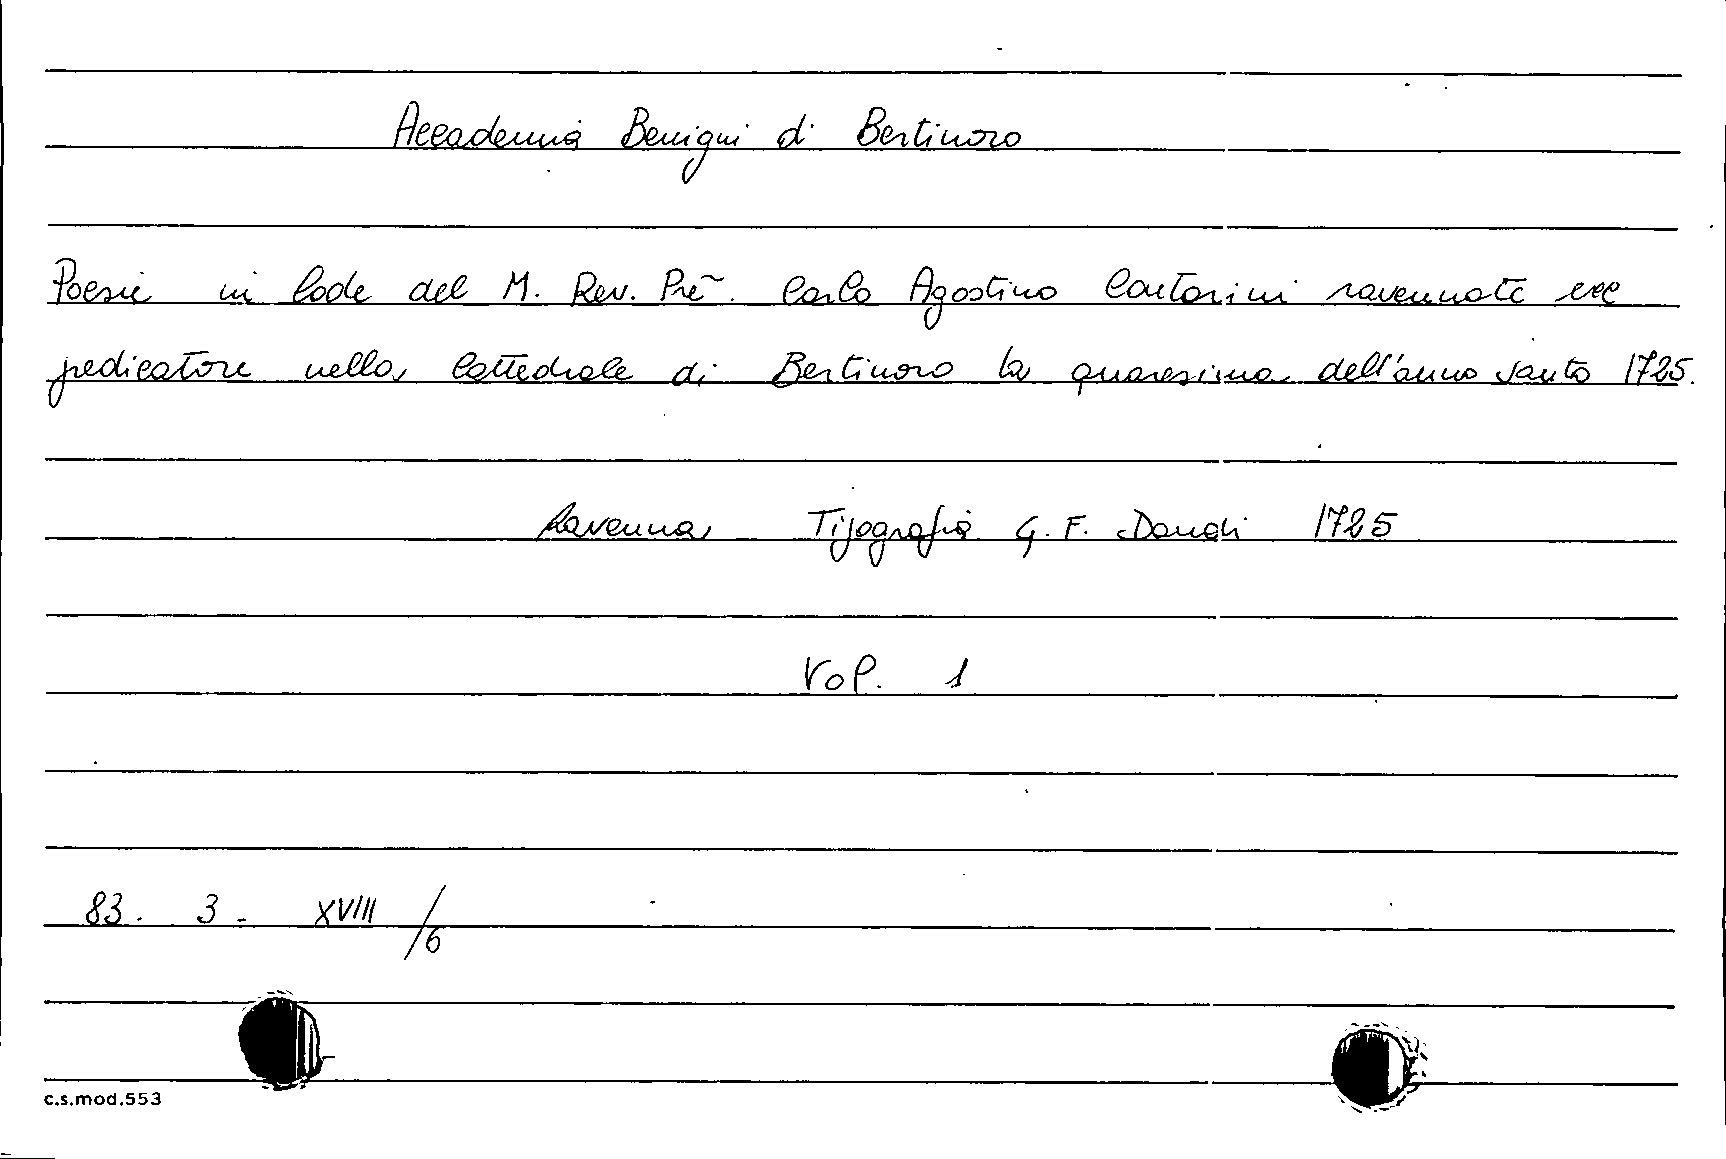 Accademia Benigni di Bertinoro
Poesie in lode del M. Rev. Prẽ. Carlo Agostino Contarini ravennate ecc
predicatore nella Cattedrale di Bertinoro la quaresima dell'anno santo 1725.
Ravenna Tipografia G. F. Dandi 1725
Vol. 1
83. 3 - XVIII/6
c.s.mod.553